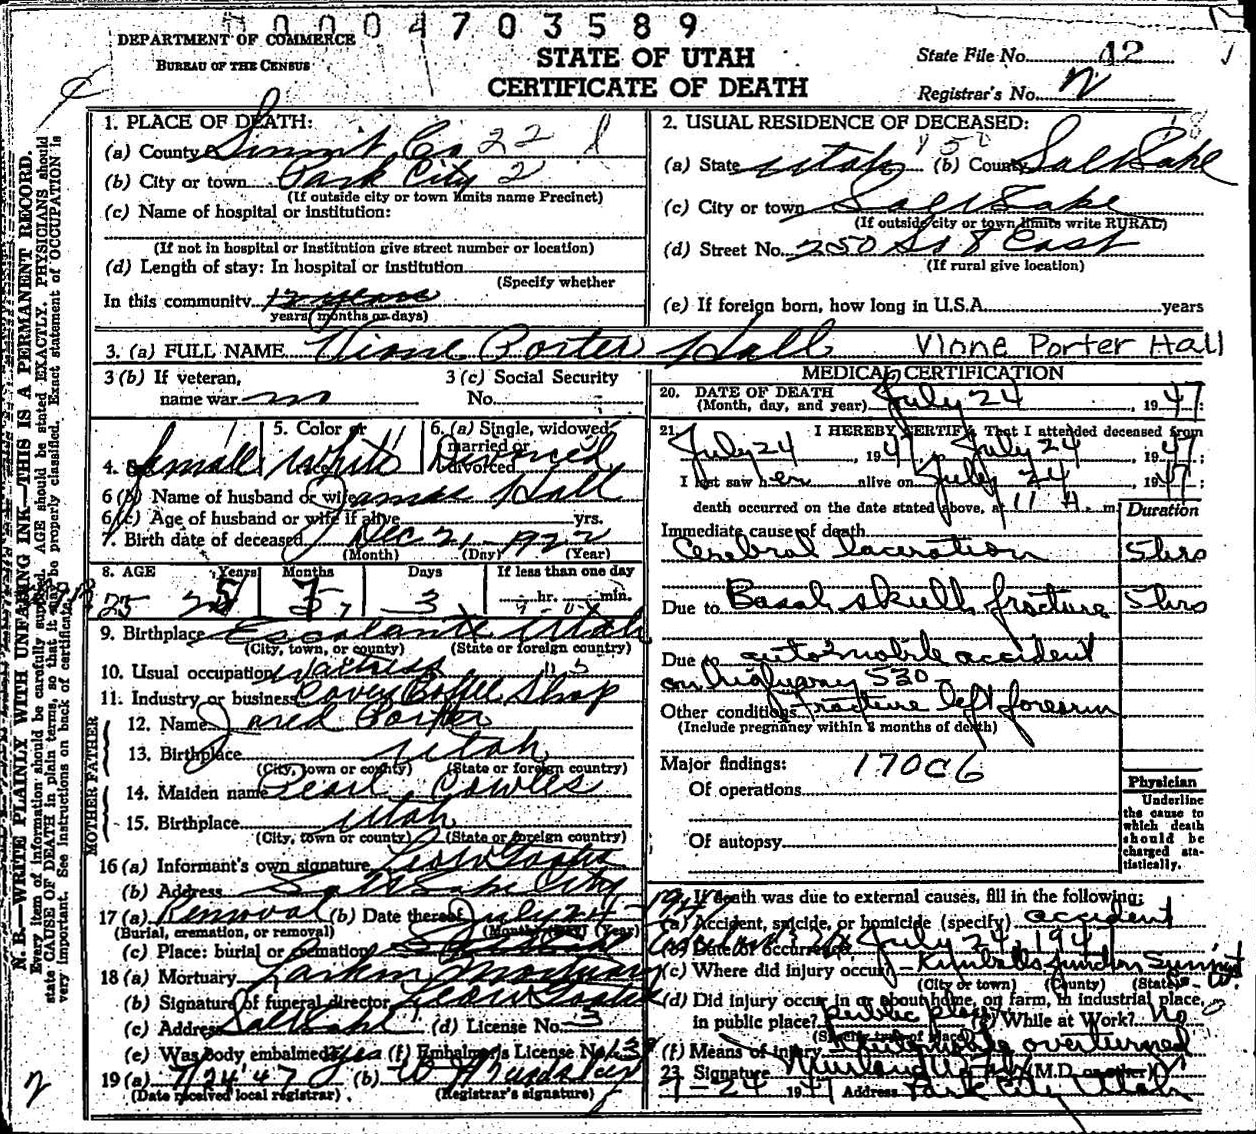 0004703589
DEPARTMENT OF COMMERCE
BUREAU OF THE CENSUS
STATE OF UTAH
CERTIFICATE OF DEATH
State File No. 42
Registrar's No.
N. B.—WRITE PLAINLY WITH UNFADING INK—THIS IS A PERMANENT RECORD.
Every item of information should be carefully supplied. AGE should be stated EXACTLY. PHYSICIANS should
state CAUSE OF DEATH in plain terms, so that it may be properly classified. Exact statement of OCCUPATION is
very important. See instructions on back of certificate.
1. PLACE OF DEATH:
(a) County Summit Co 22
(b) City or town Park City 2
(If outside city or town limits name Precinct)
(c) Name of hospital or institution:
(If not in hospital or institution give street number or location)
(d) Length of stay: In hospital or institution
(Specify whether
In this community 12 years
years, months or days)
2. USUAL RESIDENCE OF DECEASED:
(a) State Utah (b) County Salt Lake
(c) City or town Salt Lake
(If outside city or town limits write RURAL)
(d) Street No. 250 So 8 East
(If rural give location)
(e) If foreign born, how long in U.S.A. years
3. (a) FULL NAME Vione Porter Hall Vione Porter Hall
3 (b) If veteran,
name war no
3 (c) Social Security
No.
4. Sex female
5. Color or race White
6. (a) Single, widowed, married or divorced Divorced
6 (b) Name of husband or wife James Hall
6 (c) Age of husband or wife if alive yrs.
7. Birth date of deceased Dec 21 1922
(Month) (Day) (Year)
8. AGE Years Months Days If less than one day
25 7 3 hr. min.
9. Birthplace Escalante Utah
(City, town, or county) (State or foreign country)
10. Usual occupation Waitress
11. Industry or business Covey Coffee Shop
FATHER
12. Name Jared Porter
13. Birthplace Utah
(City, town or county) (State or foreign country)
MOTHER
14. Maiden name Pearl Cowles
15. Birthplace Utah
(City, town or county) (State or foreign country)
16 (a) Informant's own signature
(b) Address Salt Lake City
17 (a) Removal (b) Date thereof July 24 - 1947
(Burial, cremation, or removal) (Month) (Day) (Year)
(c) Place: burial or cremation
18 (a) Mortuary Larkin Mortuary
(b) Signature of funeral director
(c) Address Salt Lake (d) License No. 3
(e) Was body embalmed? Yes (f) Embalmer's License No.
19 (a) 7/24 '47 (b)
(Date received local registrar) (Registrar's signature)
MEDICAL CERTIFICATION
20. DATE OF DEATH
(Month, day, and year) July 24, 1947
21. I HEREBY CERTIFY, That I attended deceased from
July 24, 1947, to July 24, 1947;
I last saw her alive on July 24, 1947;
death occurred on the date stated above, at 11 A. m.
Duration
Immediate cause of death
Cerebral laceration 5 hrs
Due to Basal skull fracture 5 hrs
Due to automobile accident
on highway 530
Other conditions Fracture left forearm
(Include pregnancy within 3 months of death)
Major findings: 170C6
Of operations
Of autopsy
Physician
Underline
the cause to
which death
should be
charged sta-
tistically.
22. If death was due to external causes, fill in the following:
(a) Accident, suicide, or homicide (specify) accident
(b) Date of occurrence July 24, 194
(c) Where did injury occur? Kimballs Junction Summit
(City or town) (County) (State)
(d) Did injury occur in or about home, on farm, in industrial place,
in public place? public place (e) While at Work? No
(Specify type of place)
(f) Means of injury Automobile overturned
23. Signature (M.D. or other)
7-24 1947 Address Park City Utah